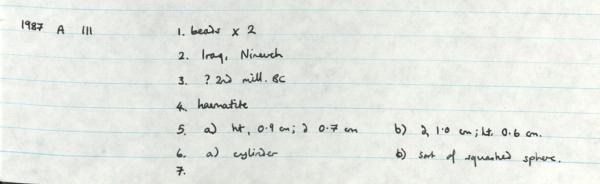 1987 A 111 1. beads x 2
2. Iraq, Nineveh
3. ? 2nd mill. BC
4. haematite
5. a) ht, 0.9 cm; d 0.7 cm b) d, 1.0 cm; ht. 0.6 cm.
6. a) cylinder b) sort of squashed sphere.
7.